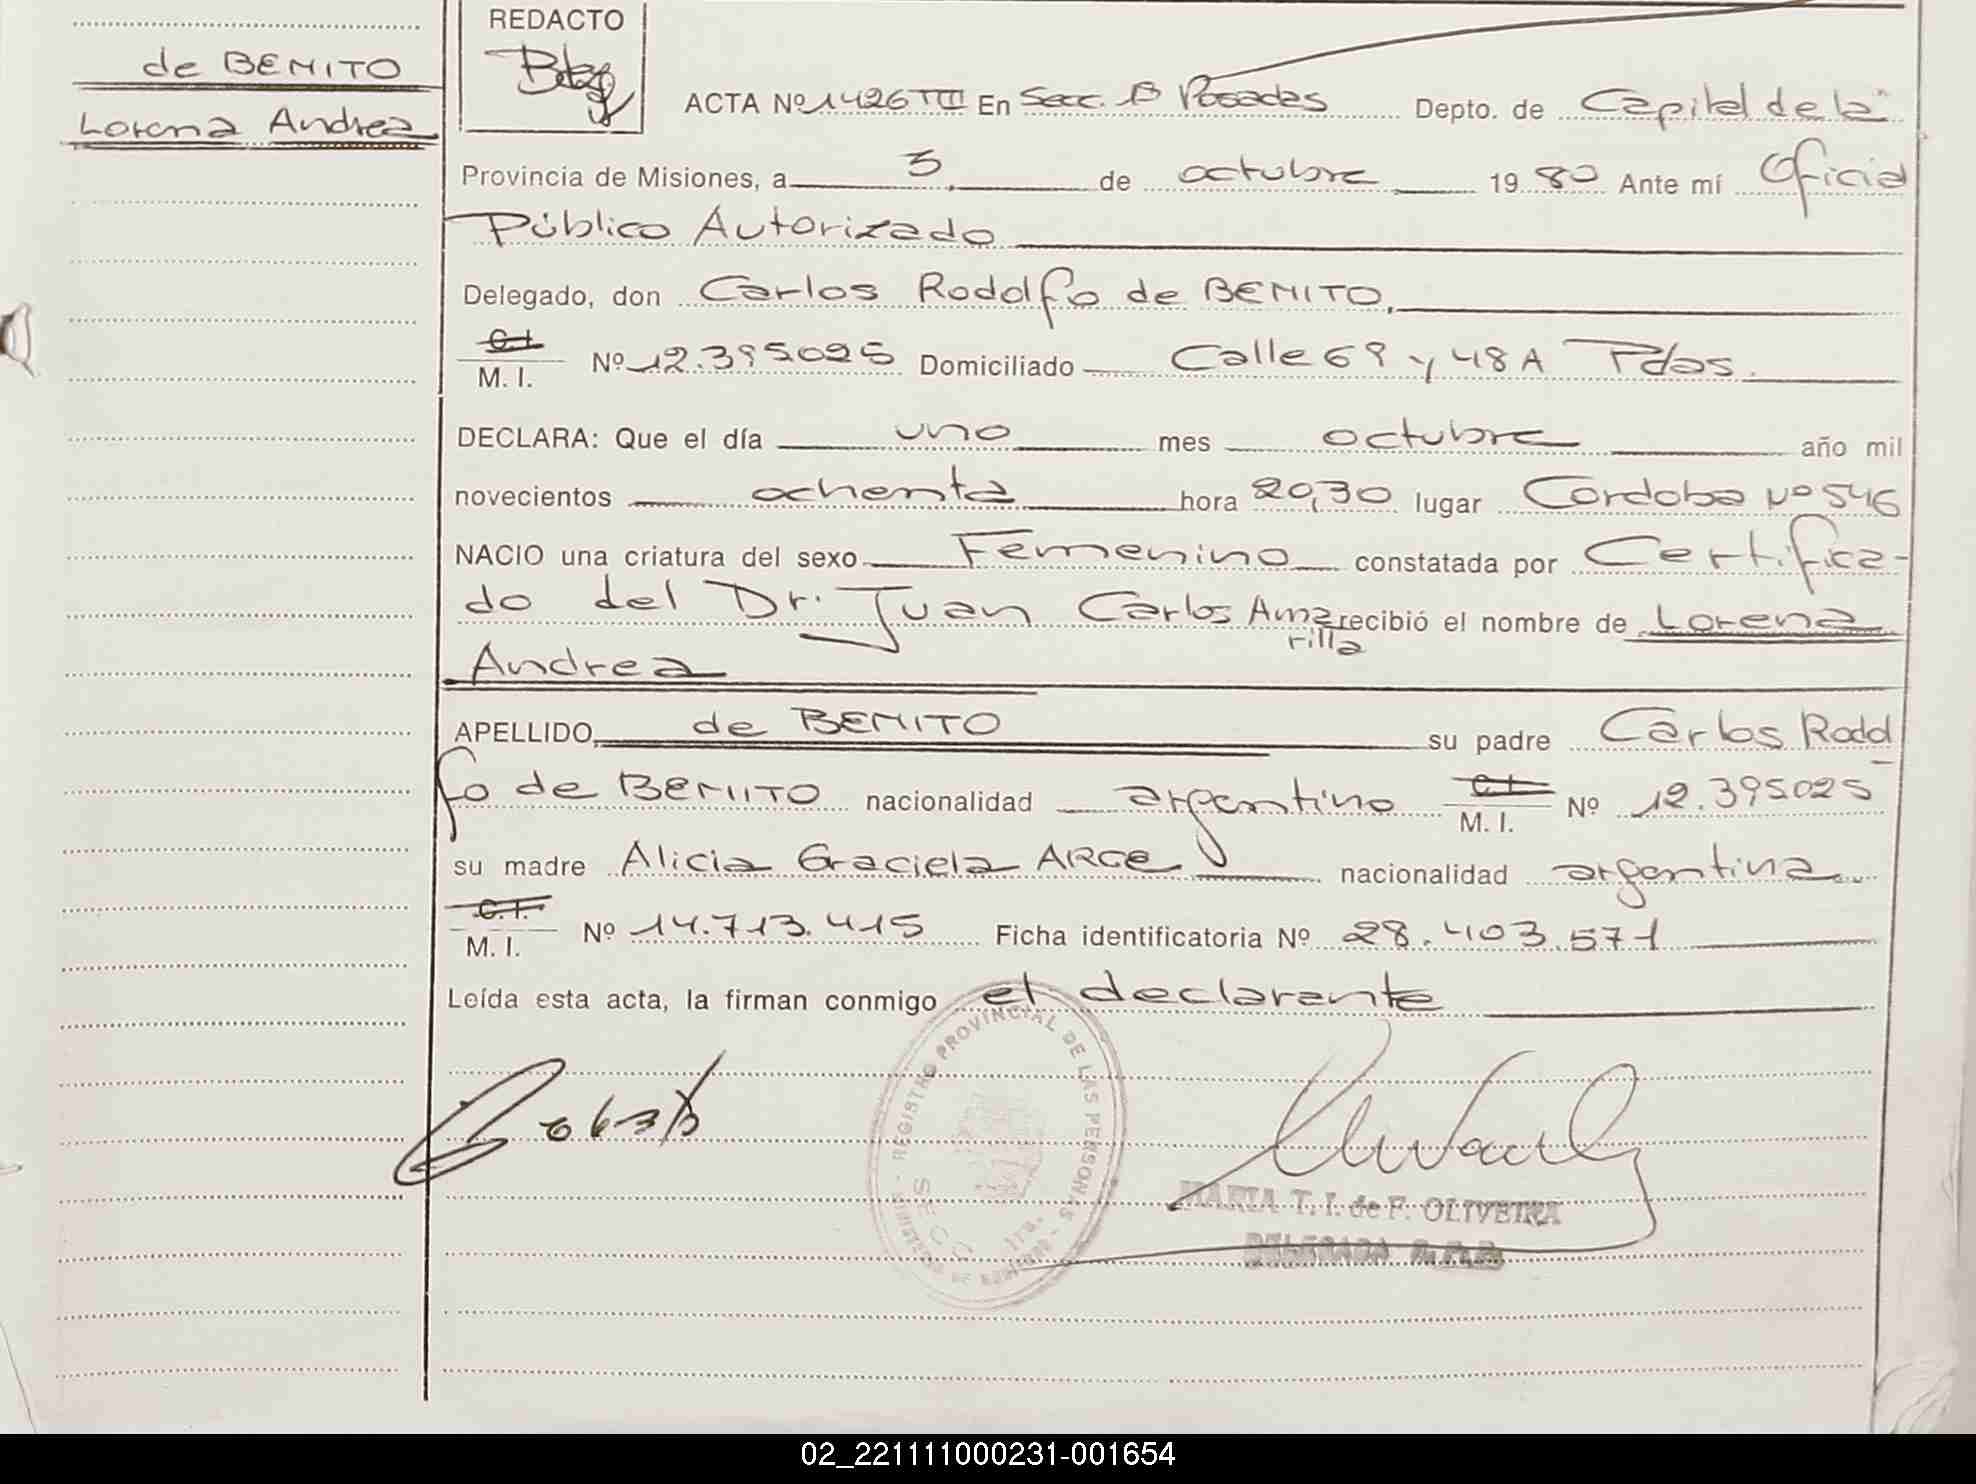 de BENITO
Lorena Andrea
REDACTO
ACTA Nº 1426 TIII En Secc. B Posadas Depto. de Capital de la
Provincia de Misiones, a 3 de octubre 1980 Ante mí Oficial
Público Autorizado
Delegado, don Carlos Rodolfo de BENITO,
C.I.
M. I. Nº 12.395025 Domiciliado Calle 69 y 48A Pdas.
DECLARA: Que el día uno mes octubre año mil
novecientos ochenta hora 20,30 lugar Cordoba Nº 546
NACIO una criatura del sexo Femenino constatada por Certifica-
do del Dr. Juan Carlos Amarilla recibió el nombre de Lorena
Andrea
APELLIDO, de BENITO su padre Carlos Rodol
fo de BENITO nacionalidad argentino C.I. M. I. Nº 12.395025
su madre Alicia Graciela ARCE nacionalidad argentina
C.I.
M. I. Nº 14.713.415 Ficha identificatoria Nº 28.403.571
Leída esta acta, la firman conmigo el declarante
REGISTRO PROVINCIAL DE LAS PERSONAS
SECC
MARIA T. I. de F. OLIVEIRA
DELEGADA R.P.P.
02_221111000231-001654